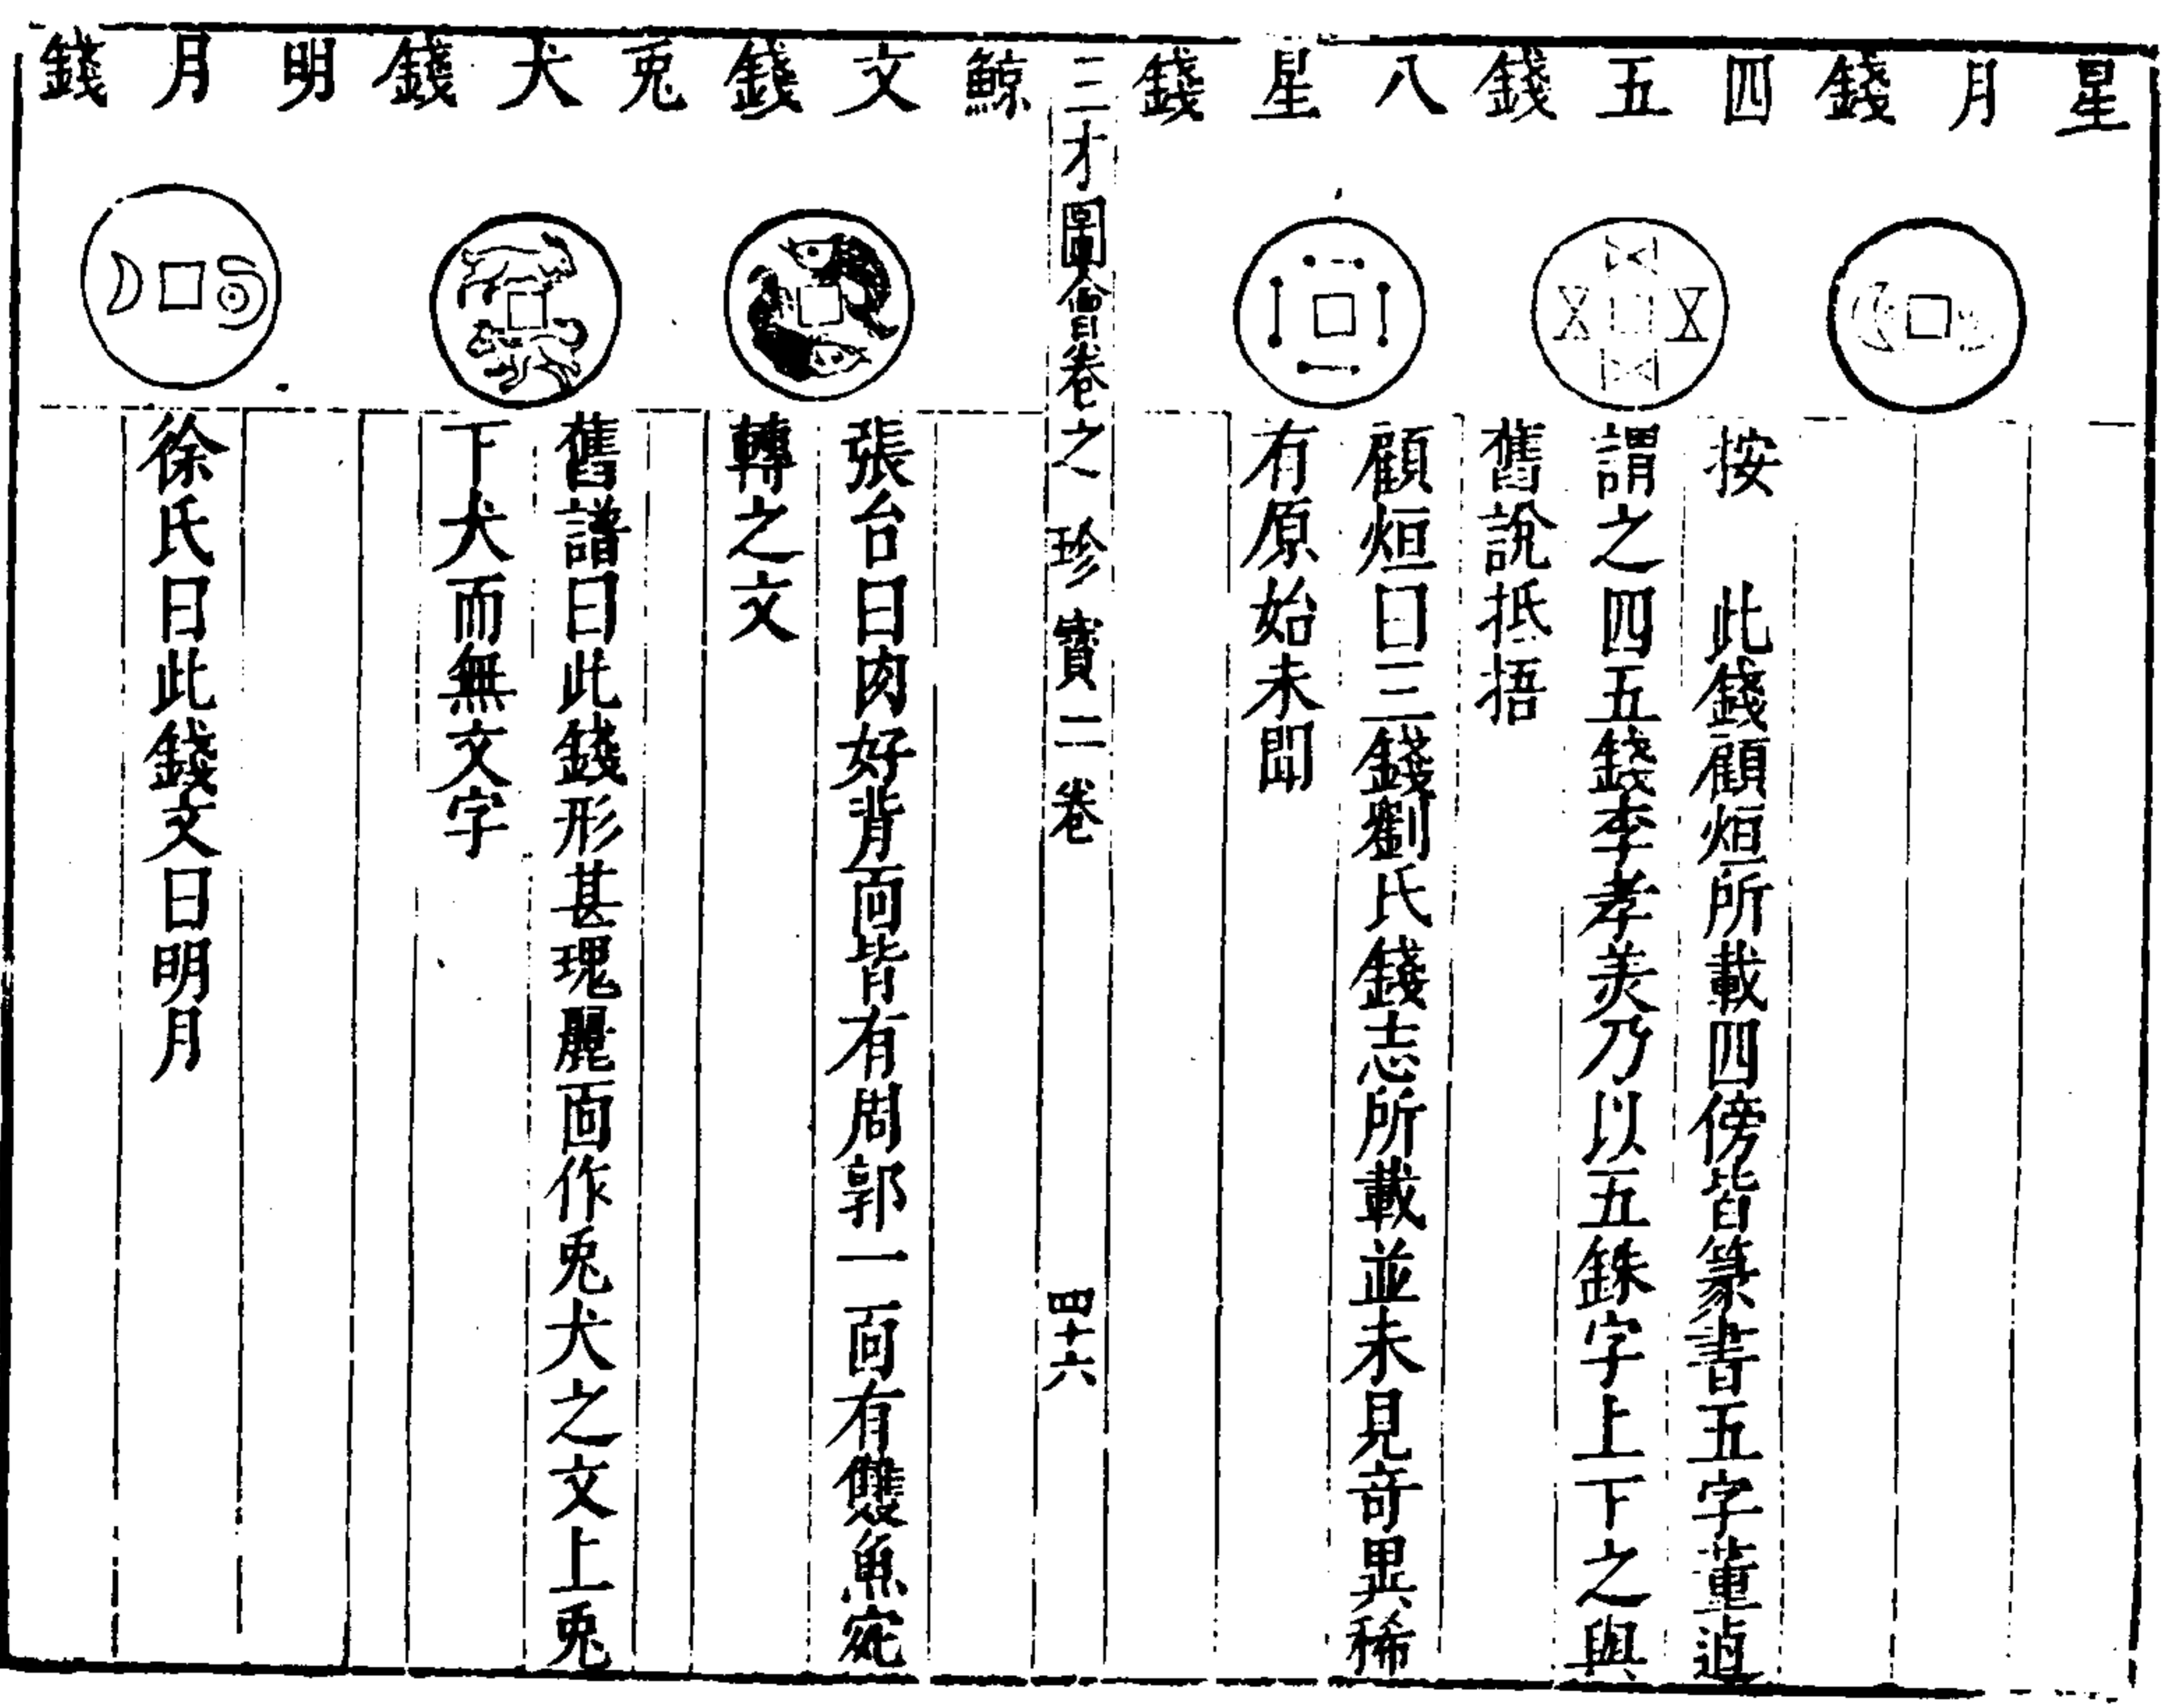 星月錢
四五錢
八星錢
按　此錢顧烜所載四傍皆篆書五字董逌
謂之四五錢李孝美乃以五銖字上下之與
舊說抵捂
顧烜曰三錢劉氏錢志所載並未見奇異稀
有原始未聞
三才圖會卷之　珍寶二卷　四十六
鯨文錢
兎犬錢
明月錢
張台曰肉好背面皆有周郭一面有雙魚宛
轉之文
舊譜曰此錢形甚瑰麗面作兎犬之文上兎
下犬而無文字
徐氏曰此錢文曰明月